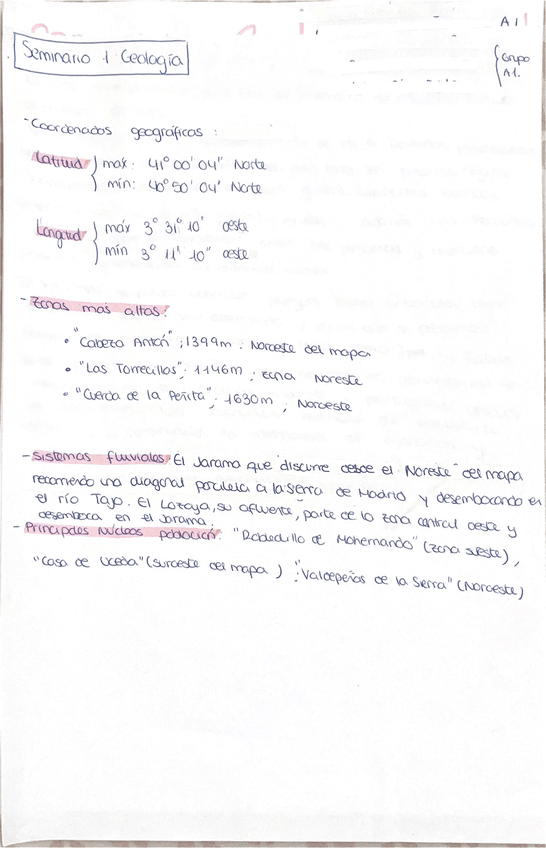 A1
Seminario 1 Geología
Grupo
A1.
- Coordenadas geográficas :
Latitud } máx : 41º 00' 04" Norte
mín: 40º 50' 04' Norte
Longitud } máx 3º 31º 10' oeste
mín 3º 11' 10" oeste
- Zonas más altas:
• "Cabeza Antón" ; 1399m : Noroeste del mapa
• "Las Torrecillas": 1146m ; zona Noreste
• "Cuerda de la Peñita": 1630m ; Noroeste
- Sistemas fluviales: El Jarama que discurre desde el Noreste del mapa
recorriendo una diagonal paralela a la Sierra de Madrid y desembocando en
el río Tajo. El Lozoya, su afluente, parte de la zona central oeste y
desemboca en el Jarama;
- Principales núcleos población: "Robledillo de Mohernando" (zona sureste),
"Casa de Uceda" (suroeste del mapa) ; "Valdepeñas de la Sierra" (Noroeste)